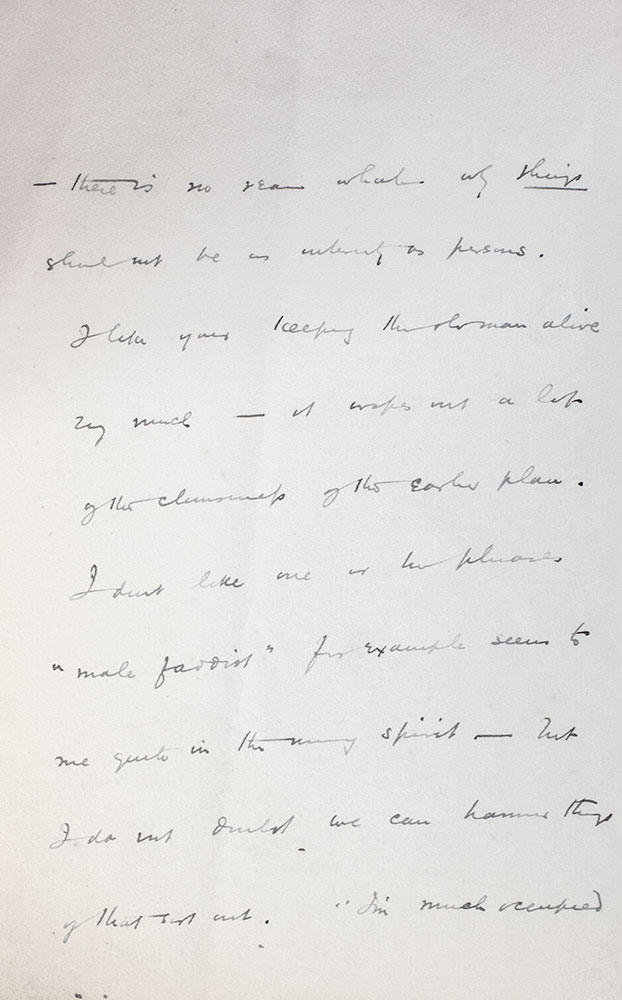 — there is no reason whatever why things
should not be as interesting as persons.
I like your keeping the old man alive
very much — it wipes out a lot
of the clumsiness of the earlier plan.
I don't like one or two phrases
"male faddist" for example seems to
me quite in the wrong spirit — but
I do not doubt we can hammer things
of that sort out. "I'm much occupied